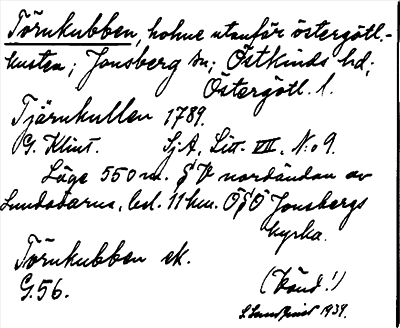 Törnkubben, holme utanför östergötl.-
kusten; Jonsberg sn; Östkinds hd;
Östergötl. l.
Tjärnkullen 1789.
G. Klint. Sj.A, Litt. VII, N:o 9.
Läge 550 m. S t V nordändan av
Lundaöarna, bel. 11 km. O S O Jonsbergs
kyrka.
Törnkubben ek.
G. 56.
(Känd!)
1939.